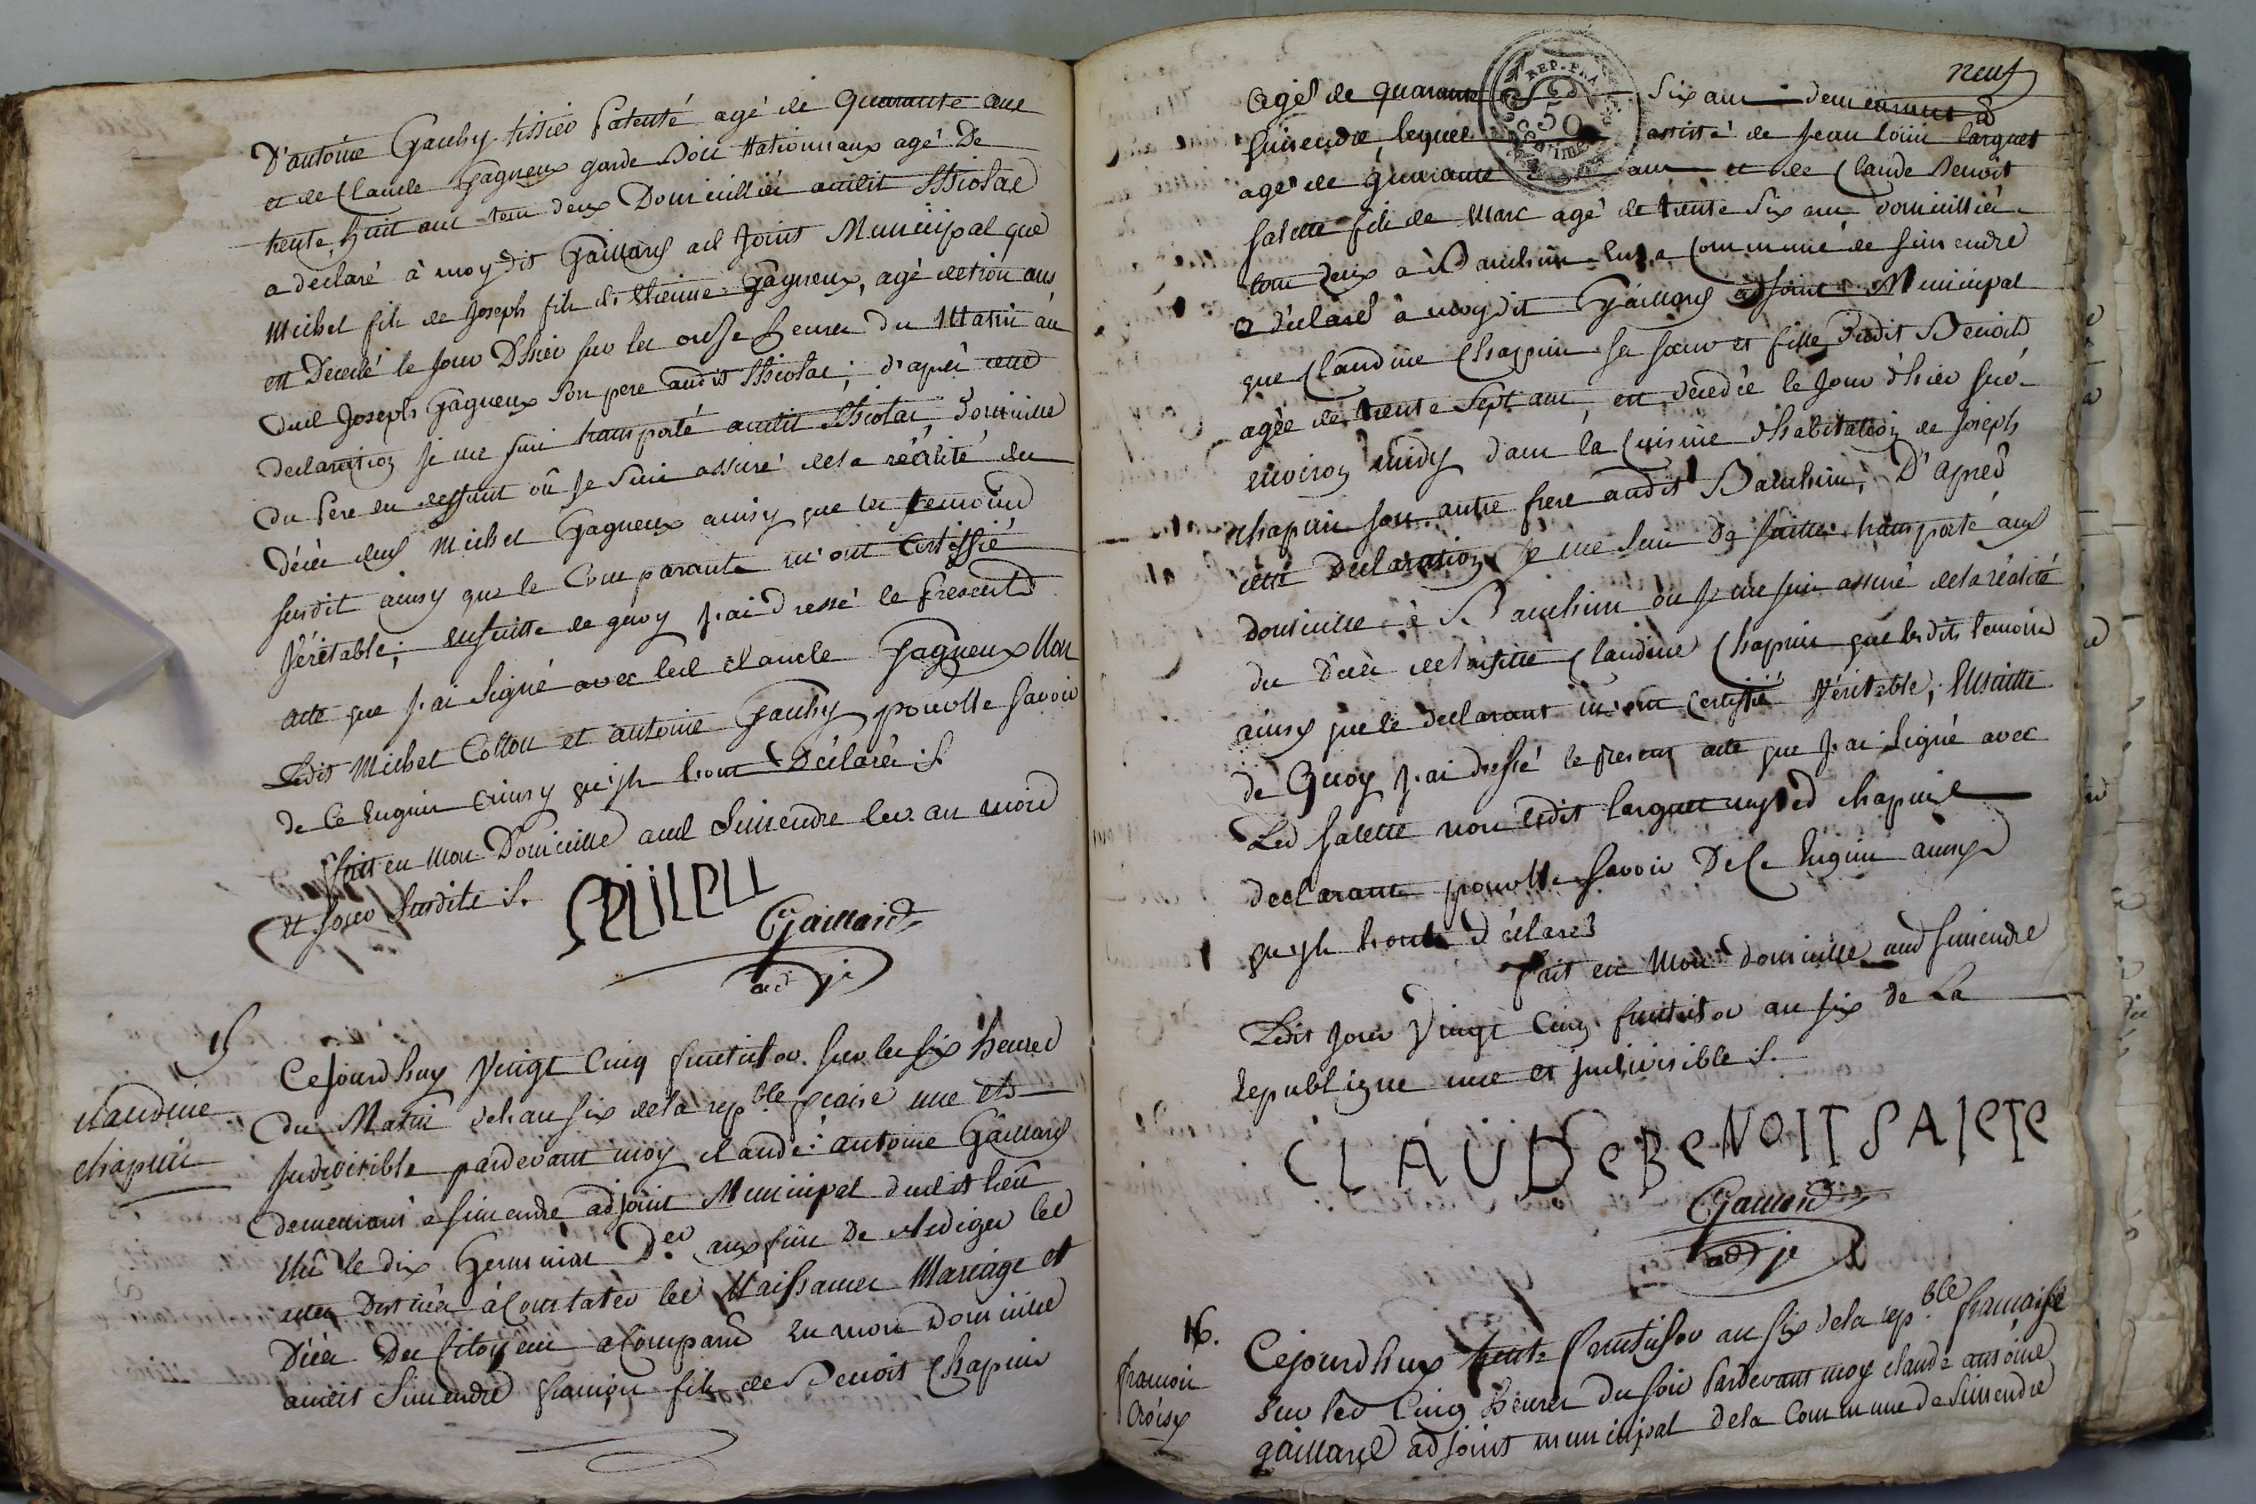 D'antoine Gauthy tissier Patenté agé de Quarante ans
et de Claude Gagneux garde Bois Nationnaux agé De
trente huit ans tous deux Domicilliés audit
a déclaré à moydit Gaillard ad Joint Municipal que
Michel fils de Joseph fils d'Etienne Gagneux, agé de trois ans
est Décedé le jour D'hier sur les onse heures du Matin au
dud Joseph Gagneux Son pere audit ; d'après cette
declaration je me suis transporté audit Domicille
du Pere du deffunt où je Suis assuré de la réalité du
décès dud Michel Gagneux ainsy que les temoins
susdit ainsy que le Comparants m'ont Certiffié
Véritable; ensuitte de quoy j'ai Dressé le present
acte que j'ai Signé avec led Claude Gagneux Non
Ledit Michel Cotton et antoine Gauthy pour Ne Savoir
de Ce Enquis ainsy qu'ils l'ont Déclarés S.
fait en Mon Domicille aud Simendre les an mois
et jour Susdits S.
Gaillard
adj.
15
claudine
chapuis
Cejourdhuy Vingt Cinq fructidor sur les six heures
du Matin de l'an six de la rep.ble fcaise une et
Indivisible pardevant moy claude antoine Gaillard
demeurant a Simendre adjoint Municipal dudit lieu
Elû le dix Germinal D.er aux fins De Rediger les
actes Destinés à Constater les Naissances Mariage et
Décès Des Citoyens a Comparu en mon Domicille
audit Simendre françois fils de Benoit Chapuis
neuf
REP. FRA
50
Agé de quarante Six ans demeurant à
Simendre, lequel assisté de Jean Louis Carguet
agé de quarante ans et de Claude Benoit
Salette fils de Marc agé de trente Six ans domicilliés
tous deux à Bauchin Susd Commune de Simendre
a déclaré à moydit Gaillard adjoint Municipal
que Claudine Chapuis sa soeur et fille dudit Benoit
agée de trente Sept ans, est décédée le Jour d'hier sur
environ midy dans la Cuisine d'habitation de Joseph
chapuis son autre frere audit Bauchin, D'après
cette Declaration je me suis De suitte transporté aud
domicille à Bauchin où je me suis assuré de la réalité
du Décès de laditte Claudine Chapuis que lesdits temoins
ainsy que le declarant m'ont Certifié Véritable, Ensuitte
de Quoy j'ai dressé le present acte que J'ai Signé avec
Led Salette non ledit Carguet ny led chapuis
declarant pour Ne Savoir De Ce Enquis ainsy
qu'ils l'ont déclaré
fait en Mon domicille aud Simendre
Ledit Jour Vingt Cinq fructidor an six de La
Republique une et indivisible S.
CLAUDe BeNOIT SAleTe
Gaillard
adj.
16.
françois
Croisy
Cejourd'huy trente fructidor an six de la rep.ble francaise
Sur les Cinq heures du soir Pardevant moy claude antoine
gaillard adjoint municipal de la Commune de Simendre